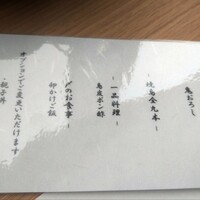 鬼おろし
- 焼鳥全九本 -
- 一品料理 -
鳥皮ポン酢
- 〆のお食事 -
卵かけご飯
オプションでご変更いただけます
・親子丼